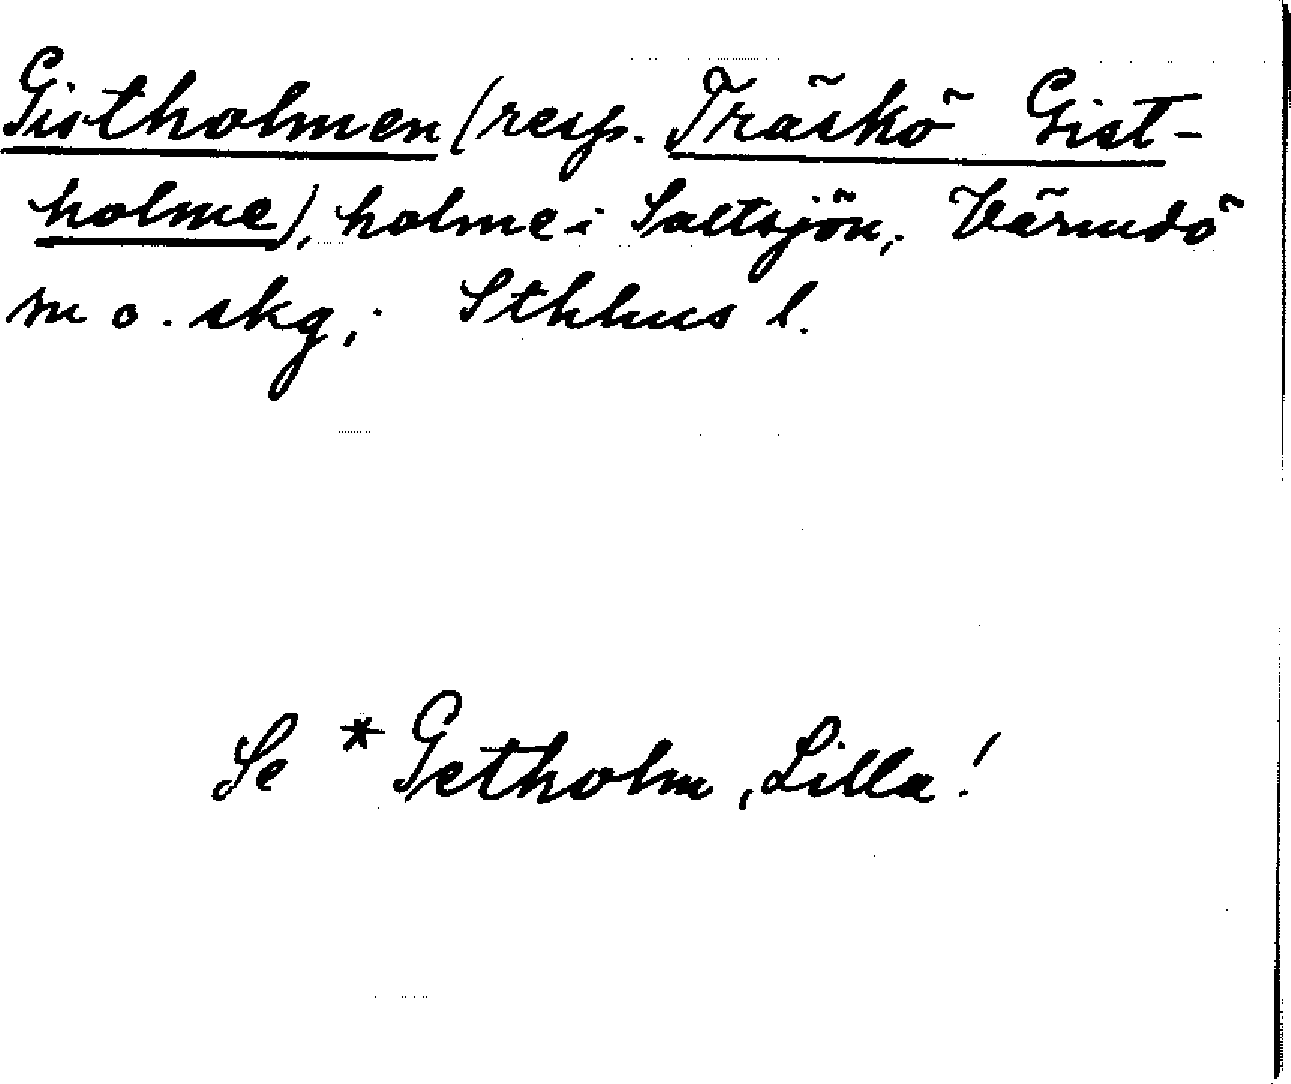 Gistholmen (resp. Träskö Gist-
holme), holme i Saltsjön, Värmdö
sn o. skg, Sthlms l.
Se * Getholm, Lilla!